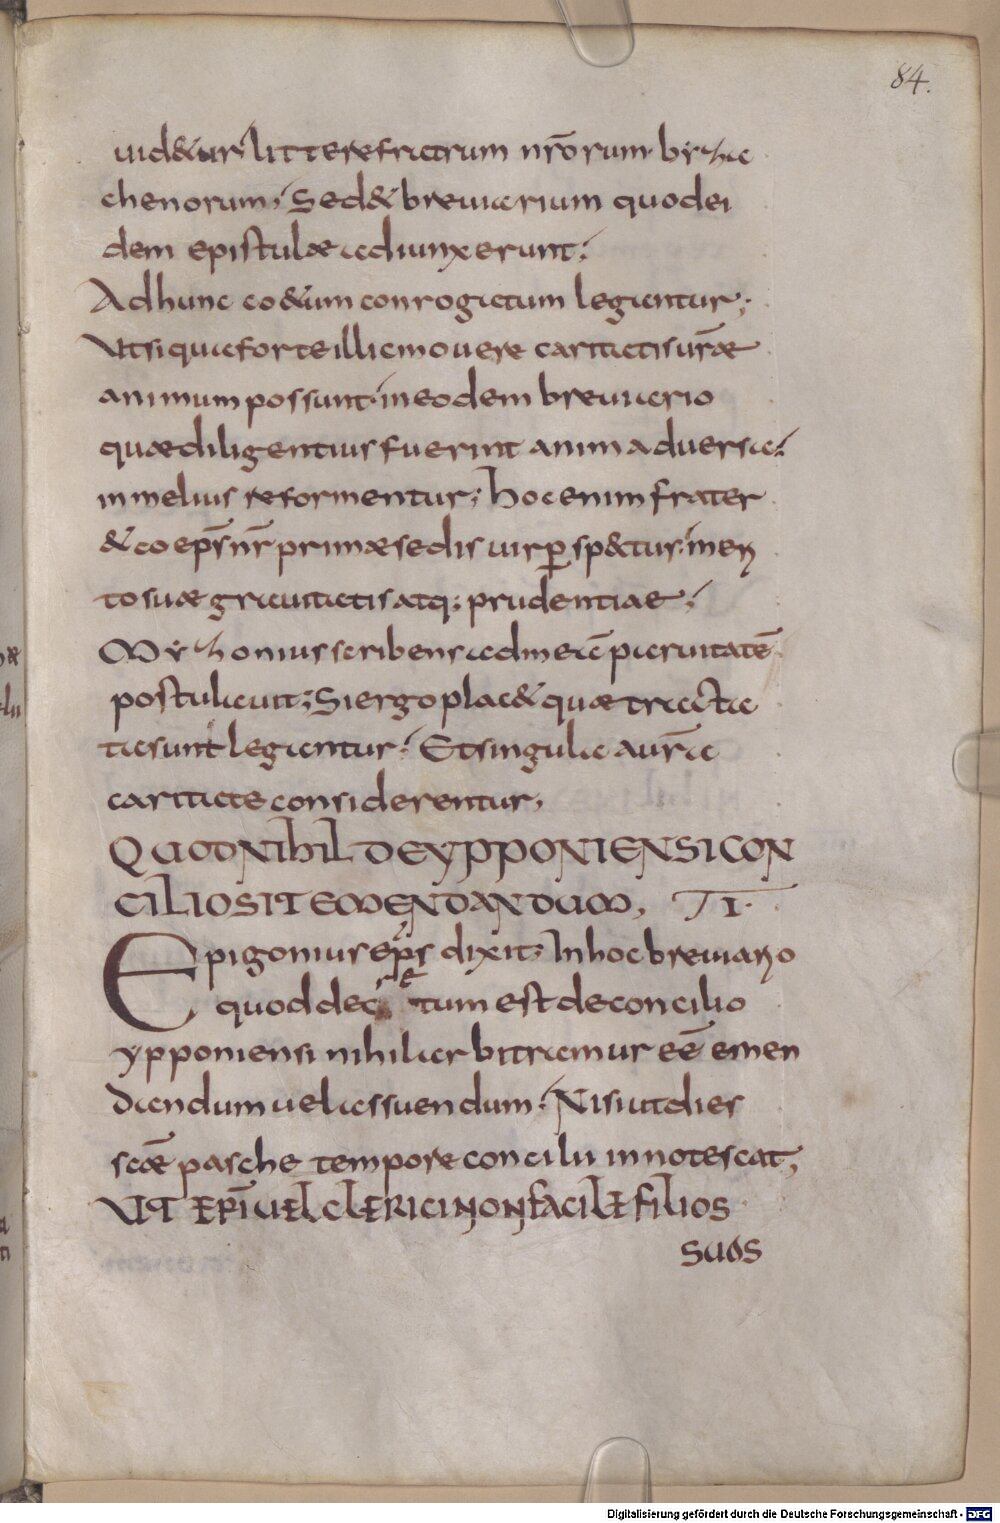 84.
uid&ur litterefratrum nr̄orum byzac
chenorum; Sed& breuiarium quodei
dem epistulæ adiunxerunt;
Adhunc co&um conrogatum legantur;
Vtsi quaeforte illicmouere caritatisur̄ae
animum possunt. ineodem breuiario
quæ diligentius fuerint animaduersa;
inmelius reformentur; hocenim frater
& coepsn̄r primæ sedis uir ꝑsp&tus. meri
to suæ grauitatis atq; prudentiae;
Myzonius scribens admeā paruitatē
postulauit; Siergo plac& quætracta
tasunt legantur; Etsingula aur̄a
caritate considerentur,
QUOD NIHIL DE YPPONIENSI CON
CILIO SIT EMENDANDUM, VI.
Epigonius ep̄s dixit; Inhoc breuiario
quod dec etum est de concilio
ypponiensi nihil arbitramur eē emen
dandum uel assuendum. Nisi utdies
scæ pasche tempore concilii innotescat;
VT EPI UEL CLERICI NON FACILE FILIOS
SUOS
Digitalisierung gefördert durch die Deutsche Forschungsgemeinschaft - DFG